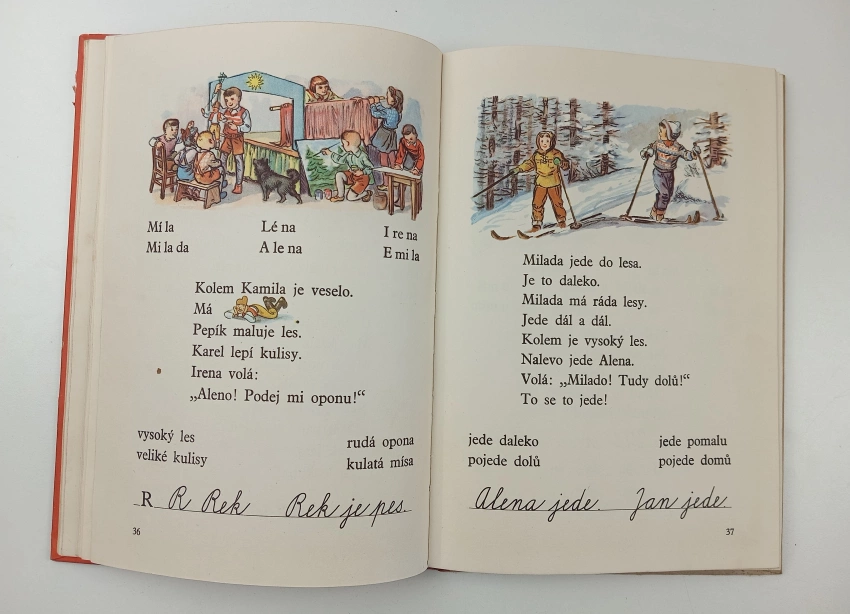 Mí la Lé na I re na
Mi la da A le na E mi la
Kolem Kamila je veselo.
Má
Pepík maluje les.
Karel lepí kulisy.
Irena volá:
„Aleno! Podej mi oponu!“
vysoký les rudá opona
veliké kulisy kulatá mísa
R R Rek Rek je pes.
36
Milada jede do lesa.
Je to daleko.
Milada má ráda lesy.
Jede dál a dál.
Kolem je vysoký les.
Nalevo jede Alena.
Volá: „Milado! Tudy dolů!“
To se to jede!
jede daleko jede pomalu
pojede dolů pojede domů
Alena jede. Jan jede.
37